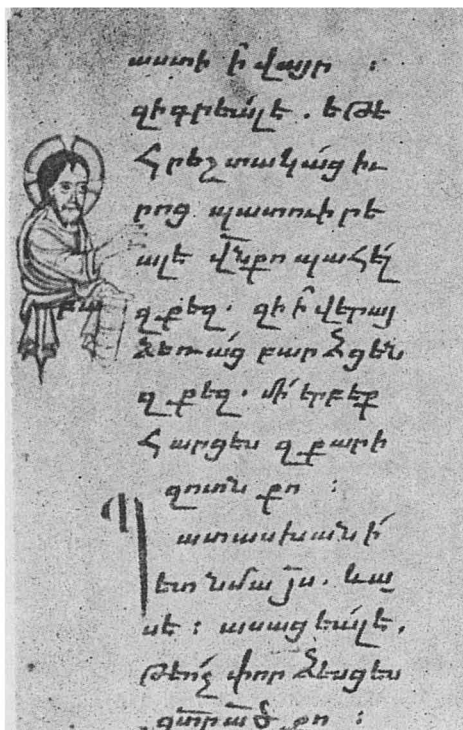 աստի ի՛ վայր :
զի գրեա՛լ է . եթե
Հրեշտակա՛ց իւ
րոց պատուիրե
ալ է վ̅ն քո պահե՛լ
զքեզ . զի ի՛ վերայ
ձեռա՛ց բարձցեն
զքեզ . մի՛ երբեք
Հարցես զքարի
զոտն քո :
Պատասխանի՛
ետ նմա յ̅ս . և ա
սե : ասացեա՛լ է .
թե ո՛չ փորձեսցես
զտ̅ր ա̅ծ քո :